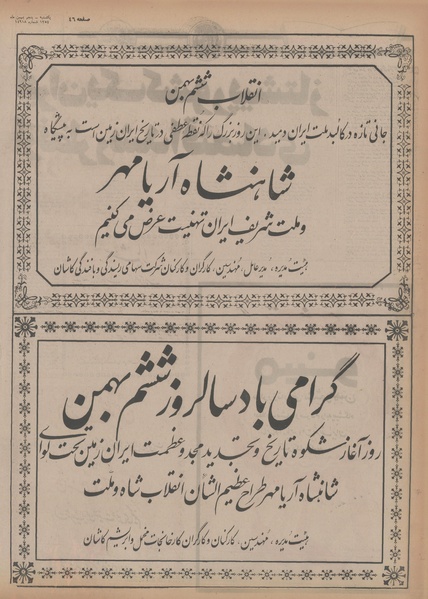 صفحه ۴۶
انقلاب ششم بهمن
جانی تازه در کالبد ملت ایران دمید، این روز بزرگ را که نقطه عطفی در تاریخ ایران زمین است به پیشگاه
شاهنشاه آریامهر
و ملت شریف ایران تهنیت عرض می کنیم
هیئت مدیره، مدیر عامل، مهندسین، کارگران و کارکنان شرکت سهامی ریسندگی و بافندگی کاشان
گرامی باد سالروز ششم بهمن
روز آغاز شکوه تاریخ و تجدید مجد و عظمت ایران زمین تحت لوای
شاهنشاه آریامهر طراح عظیم الشان انقلاب شاه و ملت
هیئت مدیره، مهندسین، کارکنان و کارگران کارخانجات مخمل و ابریشم کاشان